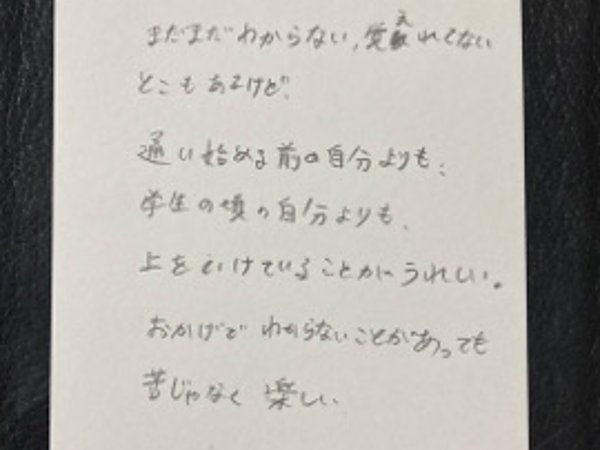 まだまだわからない，覚えれてない
とこもあるけど、
通い始める前の自分よりも、
学生の頃の自分よりも、
上をいけていることがうれしい。
おかげでわからないことがあっても
苦じゃなく楽しい